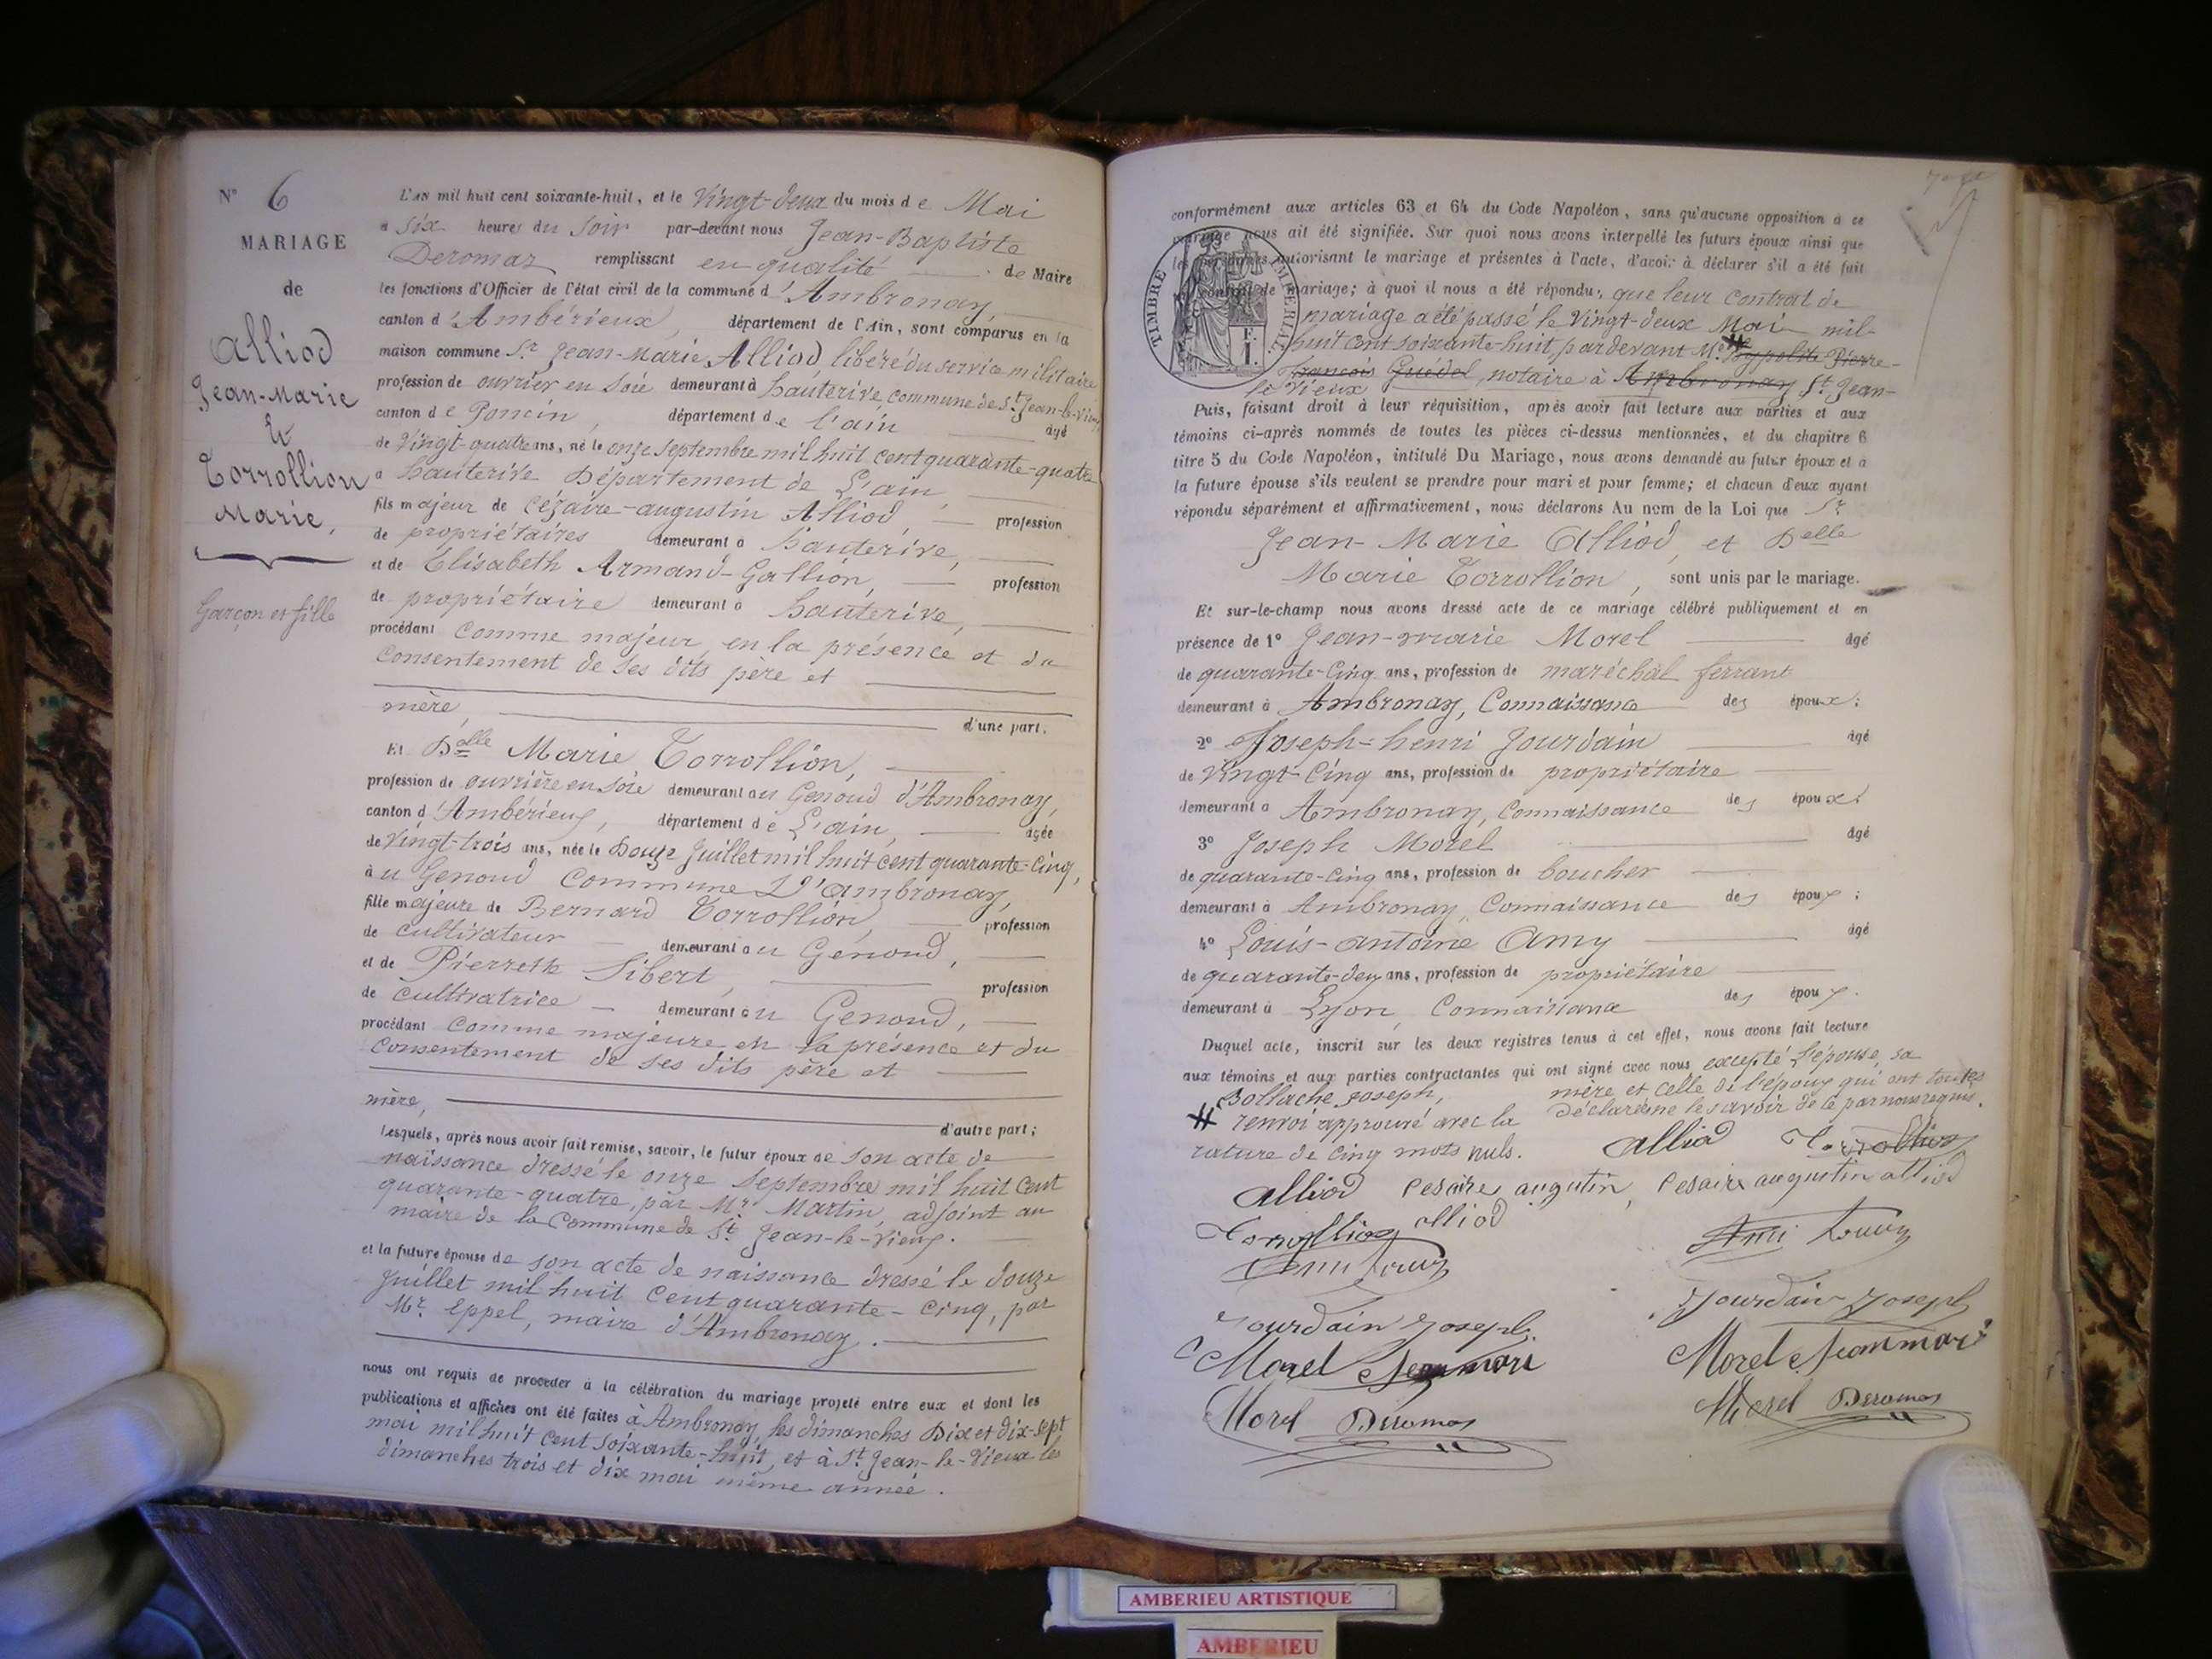 N° 6
MARIAGE
de
Alliod
Jean-Marie
Et
Torrollion
Marie,
Garçon et fille
L'an mil huit cent soixante-huit, et le Vingt-deux du mois de Mai
a six heures du soir par-devant nous Jean-Baptiste
Deromas remplissant en qualité de Maire
les fonctions d'Officier de l'état civil de la commune d'Ambronay,
canton d'Ambérieux, département de l'Ain, sont comparus en la
maison commune Sr Jean-Marie Alliod, libéré du service militaire
profession de ouvrier en soie demeurant à hauterive, commune de St Jean-le-Vieux,
canton de Poncin, département de l'ain âgé
de Vingt-quatre ans, né le onze septembre mil huit cent quarante-quatre
a hauterive Département de L'ain,
fils majeur de Cézaire-augustin Alliod, profession
de propriétaires demeurant à hauterive,
et de Elisabeth Armand-Gallion, profession
de propriétaire demeurant à hauterive,
procédant comme majeur, en la présence et du
Consentement de ses dits père et
mère, d'une part.
Et Delle Marie Torrollion,
profession de ouvrière en soie demeurant au Genoud d'Ambronay,
canton d'Ambérieux, département de L'ain, âgée
de Vingt-trois ans, née le Douze Juillet mil huit cent quarante-cinq,
à u Genoud Commune D'ambronay,
fille majeure de Bernard Torrollion, profession
de cultivateur demeurant au Genoud,
et de Pierrette Sibert, profession
de cultivatrice demeurant au Genoud,
procédant comme majeure en la présence et du
consentement de ses dits père et
mère, d'autre part;
Lesquels, après nous avoir fait remise, savoir, le futur époux de son acte de
naissance dressé le onze Septembre mil huit cent
quarante-quatre, par Mr Martin, adjoint au
maire de la Commune de St Jean-le-Vieux.
et la future épouse de son acte de naissance dressé le douze
Juillet mil huit cent quarante-cinq, par
Mr Eppel, maire d'Ambronay.
nous ont requis de procéder à la célébration du mariage projeté entre eux et dont les
publications et affiches ont été faites à Ambronay, les dimanches Dix et dix-sept
mai mil huit cent soixante-huit, et à St Jean-le-Vieux les
dimanches trois et dix mai même année.
conformément aux articles 63 et 64 du Code Napoléon, sans qu'aucune opposition à ce
mariage nous ait été signifiée. Sur quoi nous avons interpellé les futurs époux ainsi que
les personnes autorisant le mariage et présentes à l'acte, d'avoir à déclarer s'il a été fait
contrat de mariage; à quoi il nous a été répondu: que leur contrat de
mariage a été passé le Vingt-deux Mai mil
huit cent soixante-huit, par devant Me # hypolite Pierre-
François Guédel, notaire à Ambronay St Jean-
le Vieux
TIMBRE IMPERIAL.
F.
1.
Puis, faisant droit à leur réquisition, après avoir fait lecture aux parties et aux
témoins ci-après nommés de toutes les pièces ci-dessus mentionnées, et du chapitre 6
titre 5 du Code Napoléon, intitulé Du Mariage, nous avons demandé au futur époux et a
la future épouse s'ils veulent se prendre pour mari et pour femme; et chacun d'eux ayant
répondu séparément et affirmativement, nous déclarons Au nom de la Loi que Sr
Jean-Marie Alliod, et Delle
Marie Torrollion, sont unis par le mariage.
Et sur-le-champ nous avons dressé acte de ce mariage célébré publiquement et en
présence de 1° Jean-marie Morel âgé
de quarante-cinq ans, profession de maréchal ferrant
demeurant à Ambronay, Connaissance des époux;
2° Joseph-henri Jourdain âgé
de Vingt-Cinq ans, profession de propriétaire
demeurant a Ambronay, Connaissance des époux;
3° Joseph Morel âgé
de quarante-cinq ans, profession de boucher
demeurant à Ambronay, Connaissance des époux;
4° Louis-antoine Amy âgé
de quarante-deux ans, profession de propriétaire
demeurant à Lyon, Connaissance des époux.
Duquel acte, inscrit sur les deux registres tenus à cet effet, nous avons fait lecture
aux témoins et aux parties contractantes qui ont signé avec nous excepté l'épouse, sa
mère et celle de l'époux qui ont toutes
déclaré ne le savoir de ce par nous requis.
# Bollache Joseph,
renvoi approuvé avec la
rature de cinq mots nuls.
Alliod Torrollion
Alliod Cesaire augustin, Cesaire augustin alliod
Torrollion alliod
Ami Louis
Ami Louis
Jourdain Joseph
Jourdain Joseph
Morel Jeanmarie
Morel Jeanmarie
Morel Deromas
Morel Deromas
AMBERIEU ARTISTIQUE
AMBERIEU